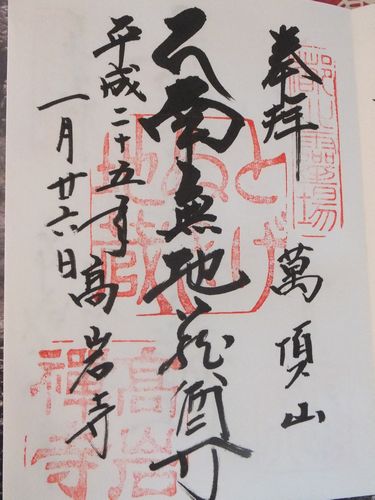 奉拝
萬頂山
南無地蔵尊
平成二十五年
一月廿六日
高岩寺
とげ
ぬき
地蔵
高岩
禪寺